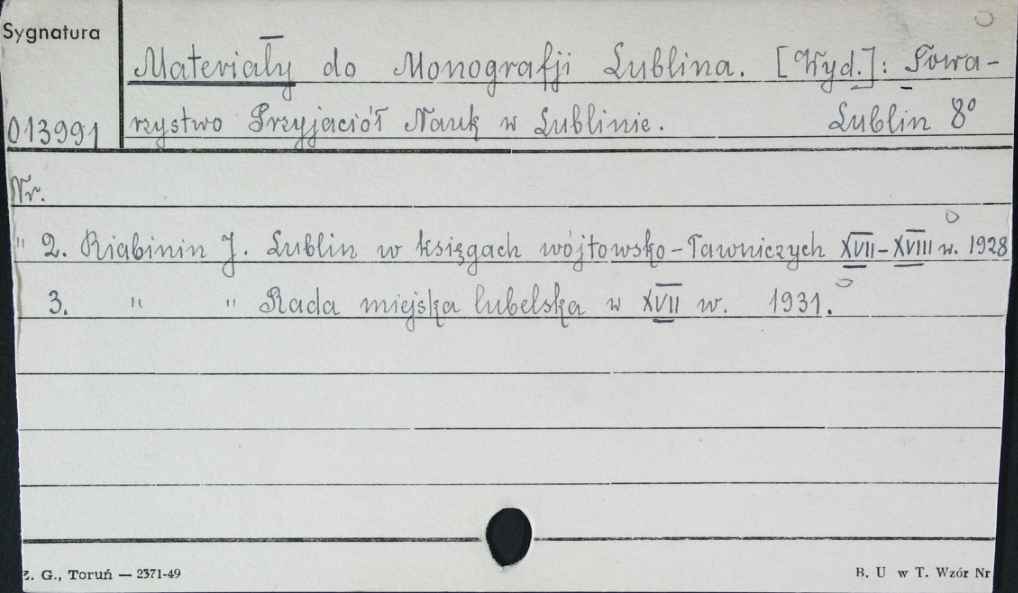 Sygnatura
Materiały do Monografji Lublina. [Wyd.]: Towa-
013991 rzystwo Przyjaciół Nauk w Lublinie. Lublin 8°
Nr.
" 2. Riabinin J. Lublin w księgach wójtowsko-ławniczych XVII-XVIII w. 1928
3. " " Rada miejska lubelska w XVII w. 1931.
Z. G., Toruń — 2371-49 B. U w T. Wzór Nr